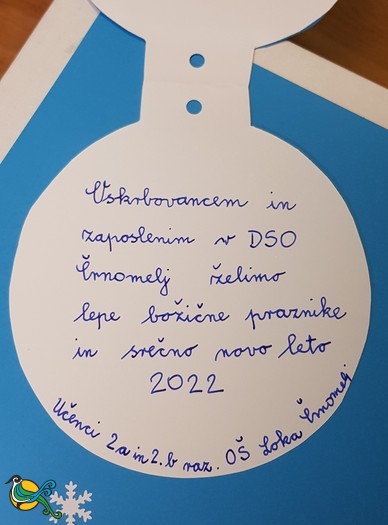 Oskrbovancem in
zaposlenim v DSO
Črnomelj želimo
lepe božične praznike
in srečno novo leto
2022
Učenci 2.a in 2.b raz. OŠ Loka Črnomelj